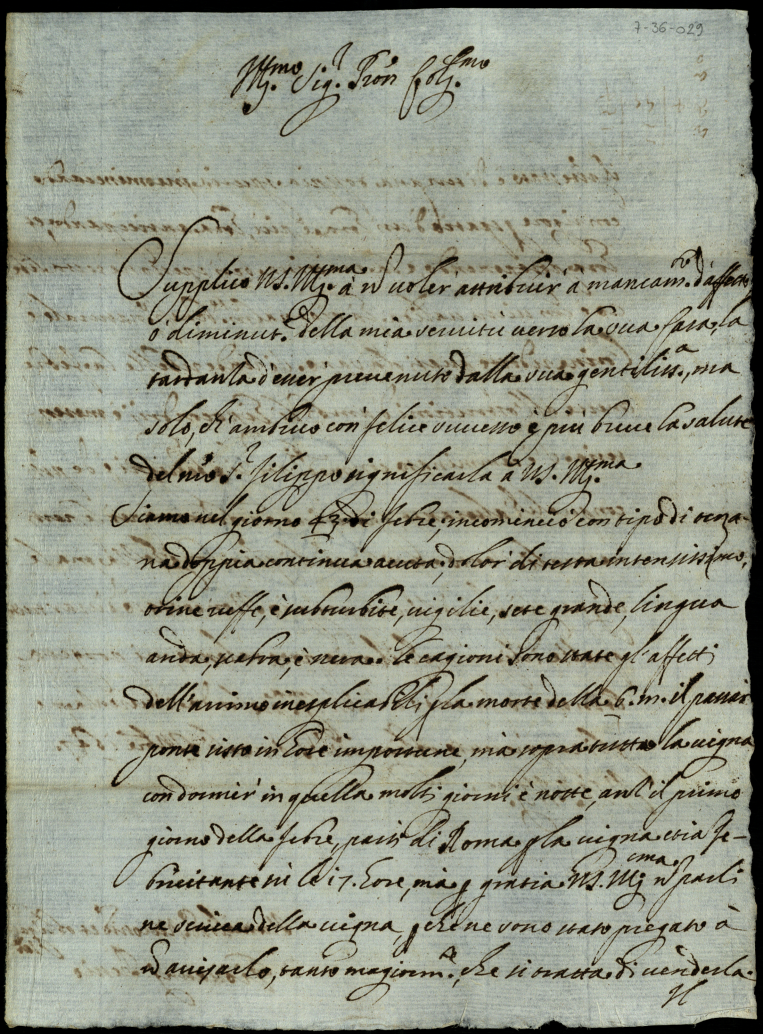 7-36-029
Ill.mo Sig.r Pron Col.mo
Supplico V.S. Ill.ma à nõ voler attribuir à mancam.to d'affetto
o diminut.e della mia servitù verso la sua Casa, la
tardanza d'esser prevenuto dalla sua gentiliss.a, ma
solo, ch'ambivo con felice successo è più breve la salute
del S.r Filippo significarla à V.S. Ill.ma
Siamo nel giorno 13 di febre, incominciò con tipo di terza-
na doppia continua acuta, dolor di testa intensissimo,
orine è subturbite, vigilie, sete grande, lingua
arida, scabra, è nera. le cagioni sono state gl'affetti
dell'animo inesplicabili p la morte della b. m. il passar
ponte sisto in hore importune, mà sopra tutto la vigna
con dormir in quella molti giorni è notte, anzi il primo
giorno della febre, partì di Roma p la vigna etia fe-
bricitante su le 17 hore, mà p gratia V.S. Ill.ma nõ parli
ne scriva della vigna, p che ne sono stato pregato à
nõ avisarlo, tanto magiorm.te, che si tratta di venderla.
Il